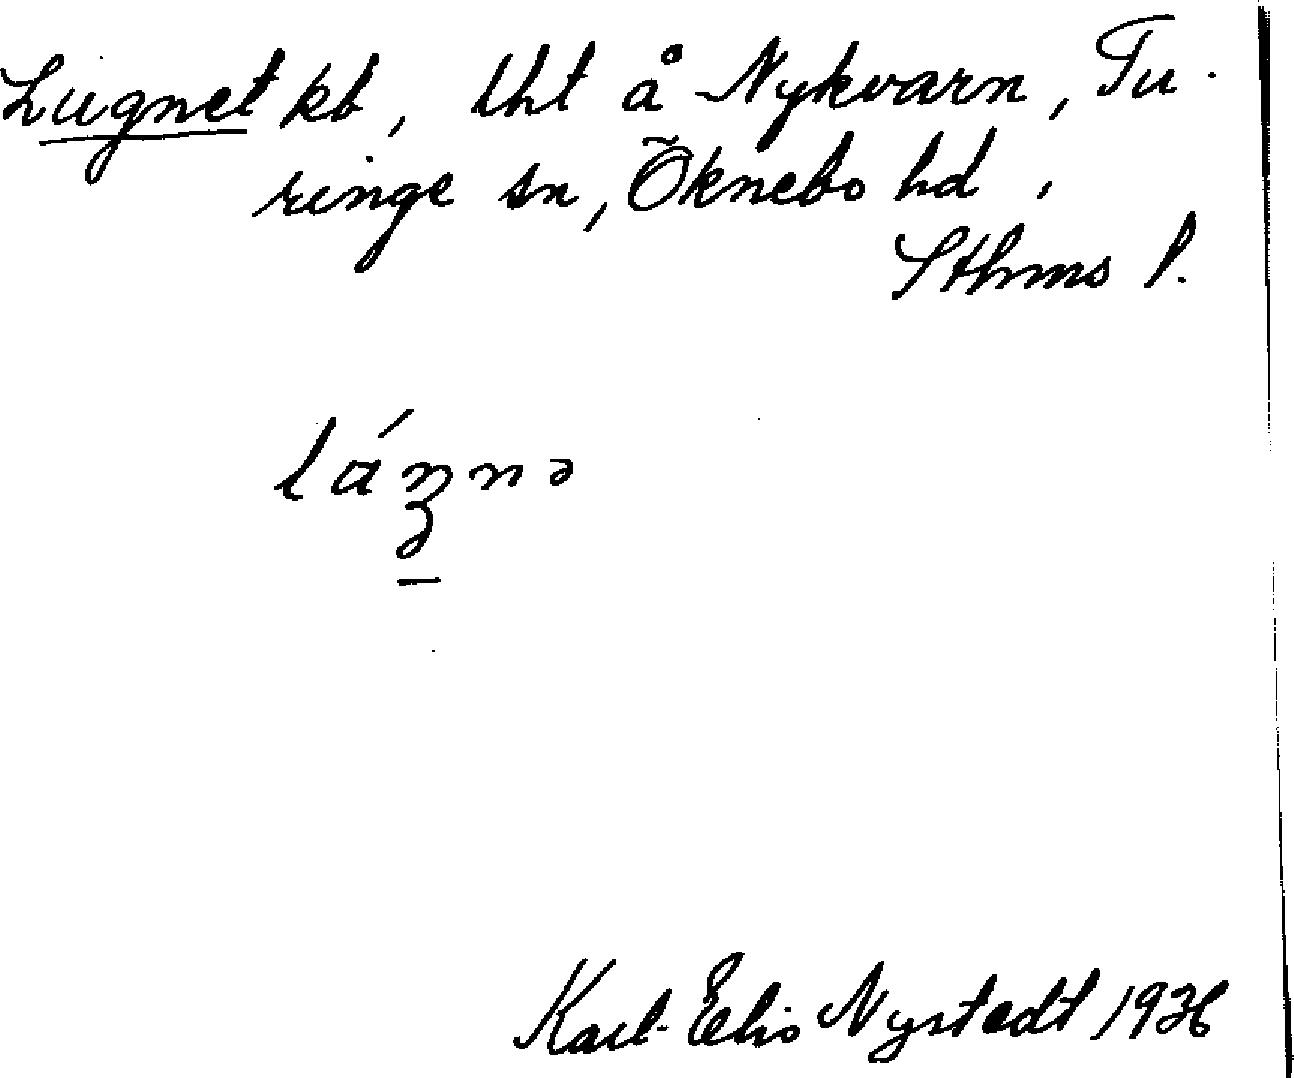 Lugnet kb, tht å Nykvarn, Tu-
ringe sn, Öknebo hd,
Sthms l.
Karl-Elis Nystedt 1936